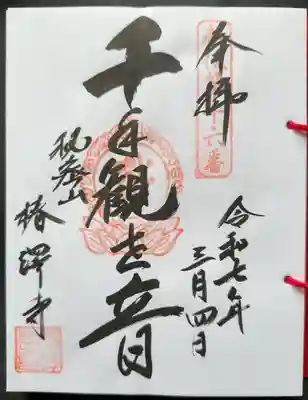 奉拝
十六番
千手観世音
令和七年
三月四日
山
椿澤寺